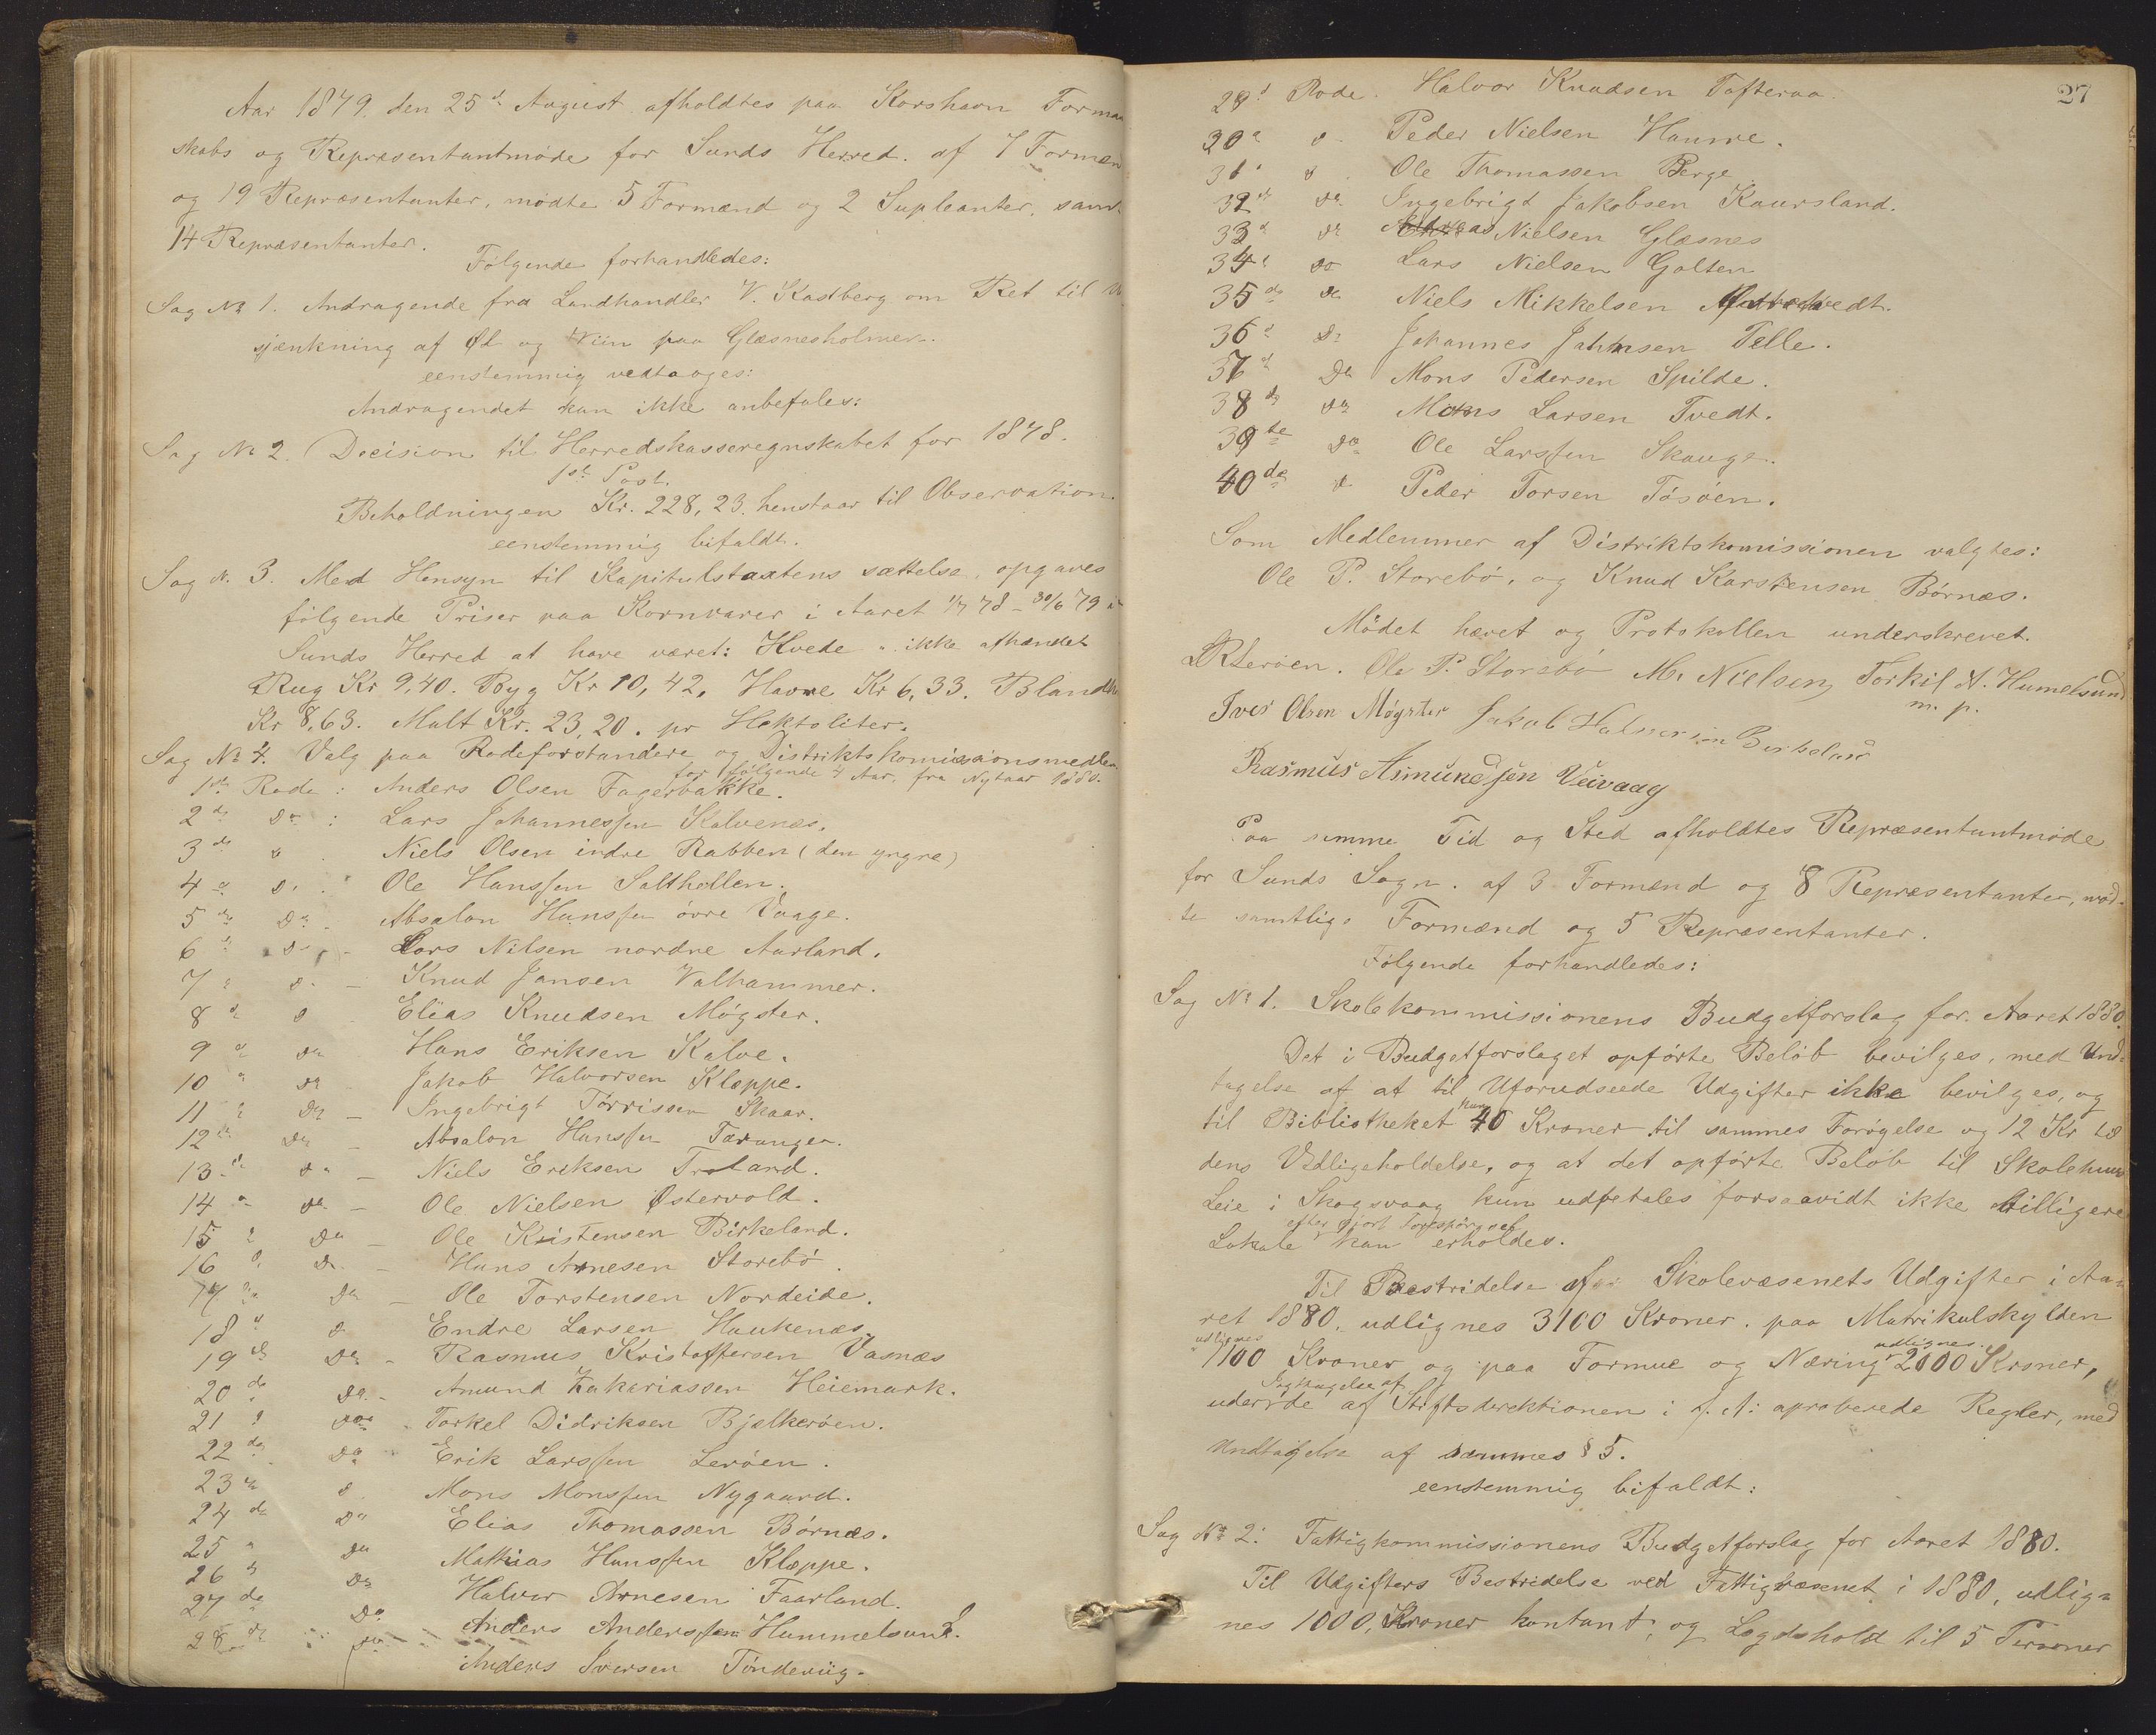 Aar 1879, den 25de August afholdtes paa Korshavn Forman
skabs og Repræsentantmöde for Sunds Herred. af 7 Formæn
og 19 Repræsentanter, mödte 5 Formænd og 2 Supleanter, samt
14 Repræsentanter.
Fölgende forhandledes:
Sag No 1. Andragende fra Landhandler V. Kastberg om Ret til U
sjænkning af Øl og Viin paa Glæsnesholmen.
eenstemmig vedtoges:
Andragendet kan ikke anbefales:
Sag No 2. Decision til Herredskasseregnskabet for 1878.
1ste Post.
Beholdningen Kr. 228,23. henstaar til Observation.
eenstemmig bifaldt.
Sag N. 3. Med Hensyn til Kapitulstaxtens sættelse, opgaves
fölgende Priser paa Kornvarer i Aaret 1/7 78 - 30/6 79 i
Sunds Herred at have været: Hvede " ikke afhændet
Rug Kr 9,40. Byg Kr 10,42, Havre Kr 6,33. Bland
Kr 8,63. Malt Kr. 23,20. pr Hektoliter.
Sag No 4. Valg paa Rodeforstandere og Distriktskomissionsmedlem
for fölgende 4 Aar, fra Nytaar 1880.
1ste Rode: Anders Olsen Fagerbakke.
2de Do : Lars Johannessen Kalvenes.
3de D Niels Olsen indre Rabben (den yngre)
4d D. Ole Hanssen Salthellen.
5de Do. Absalon Hanssen övre Vaage.
6d D - Lars Nilsen nordre Aurland.
7d D. - Knud Jansen Valhammer.
8d D Elias Knudsen Mögster.
9d Do Hans Eriksen Kalve.
10d Do Jakob Halvorsen Kleppe.
11d Do - Ingebrigt Törrissen Skaar.
12te Do - Absalon Hanssen Tæranger.
13d Do - Niels Eriksen Troland.
14d Do - Ole Nielsen Østervold.
15d Do - Ole Kristensen Birkeland.
16d D. - Hans Arnesen Storebö.
17de Do - Ole Torstensen Nordeide.
18d D Endre Larsen Haukenæs.
19de Do - Rasmus Kristoffersen Vasnæs
20de Do - Amund Zakariassen Heiemark.
21d Do - Torkel Didriksen Bjelkeröen.
22de Do - Erik Larssen Leröen.
23de D Mons Monssen Nygaard.
24de Do Elias Thomassen Börnes.
25d Do Mathias Hanssen Kleppe.
26d Do Halvor Arnesen Faarland.
27de Do Anders Anderssen Hummelsund.
28de Do Anders Iversen Tönderüg.
27
29d Rode. Halvor Knudsen Tofteraa.
30d D. Peder Nielsen Hamre.
31d D. Ole Thomassen Berge
32d Do. Ingebrigt Jakobsen Kaursland.
33d Do Andreas Nielsen Glæsnes
34d Do Lars Nielsen Golten
35de Do Niels Mikkelsen
36d Do Johannes Johnsen Telle.
37d Do Mons Pedersen Spilde.
38de Do Mons Larsen Tvedt.
39te Do Ole Larssen Skauge.
40de D Peder Torsen Tösöen.
Som Medlemmer af Distriktskomissionen valgtes:
Ole P. Storebö, og Knud Karstensen Börnæs.
Mödet hævet og Protokollen underskrevet.
Leröen. Ole P. Storebö M. Nielsen, Torkil N. Humelsund
m. p.
Iver Olsen Møgster Jakob Halvorsen Birkeland
Rasmüs Asmündsen Veivaag
Paa samme Tid og Sted afholdtes Repræsentantmöde
for Sunds Sogn. af 3 Formænd og 8 Repræsentanter, möd-
te samtlige Formænd og 5 Repræsentanter.
Fölgende forhandledes:
Sag No 1. Skolekommissionens Budgetforslag for Aaret 1880.
Det i Budgetforslaget opförte Belöb bevilges, med Und-
tagelse af at til Uforudseede Udgifter ikke bevilges, og
til Bibliotheket kun 40 Kroner til sammes Forögelse og 12 Kr til
dens Vedligeholdelse, og at det opförte Belöb til Skolehuus
Leie i Skogsvaag kun udbetales forsaavidt ikke billigere
efter gjort Forespörgsel
Lokale kan erholdes.
Til Bestridelse af Skolevæsenets Udgifter i Aa-
ret 1880, udlignes 3100 Kroner. paa Matrikulskylden
udlignes udlignes
1100 Kroner og paa Formue og Næring 2000 Kroner,
Iagttagelse af
under de af Stiftsdirektionen i f. A. aproberede Regler, med
Undtagelse af sammes § 5.
eenstemmig bifaldt:
Sag No 2. Fattigkommissionens Budgetforslag for Aaret 1880.
Til Udgifters Bestridelse ved Fattigvæsenet i 1880, udlig-
nes 1000, Kroner kontant, og Legdshold til 5 Personer